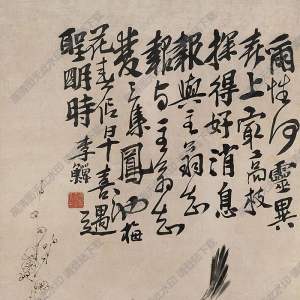 爾性何靈異
上最高枝
探得好消息
報與主翁知
報与主翁知
集鳳池梅
花春信早喜遇
聖明時 李鱓